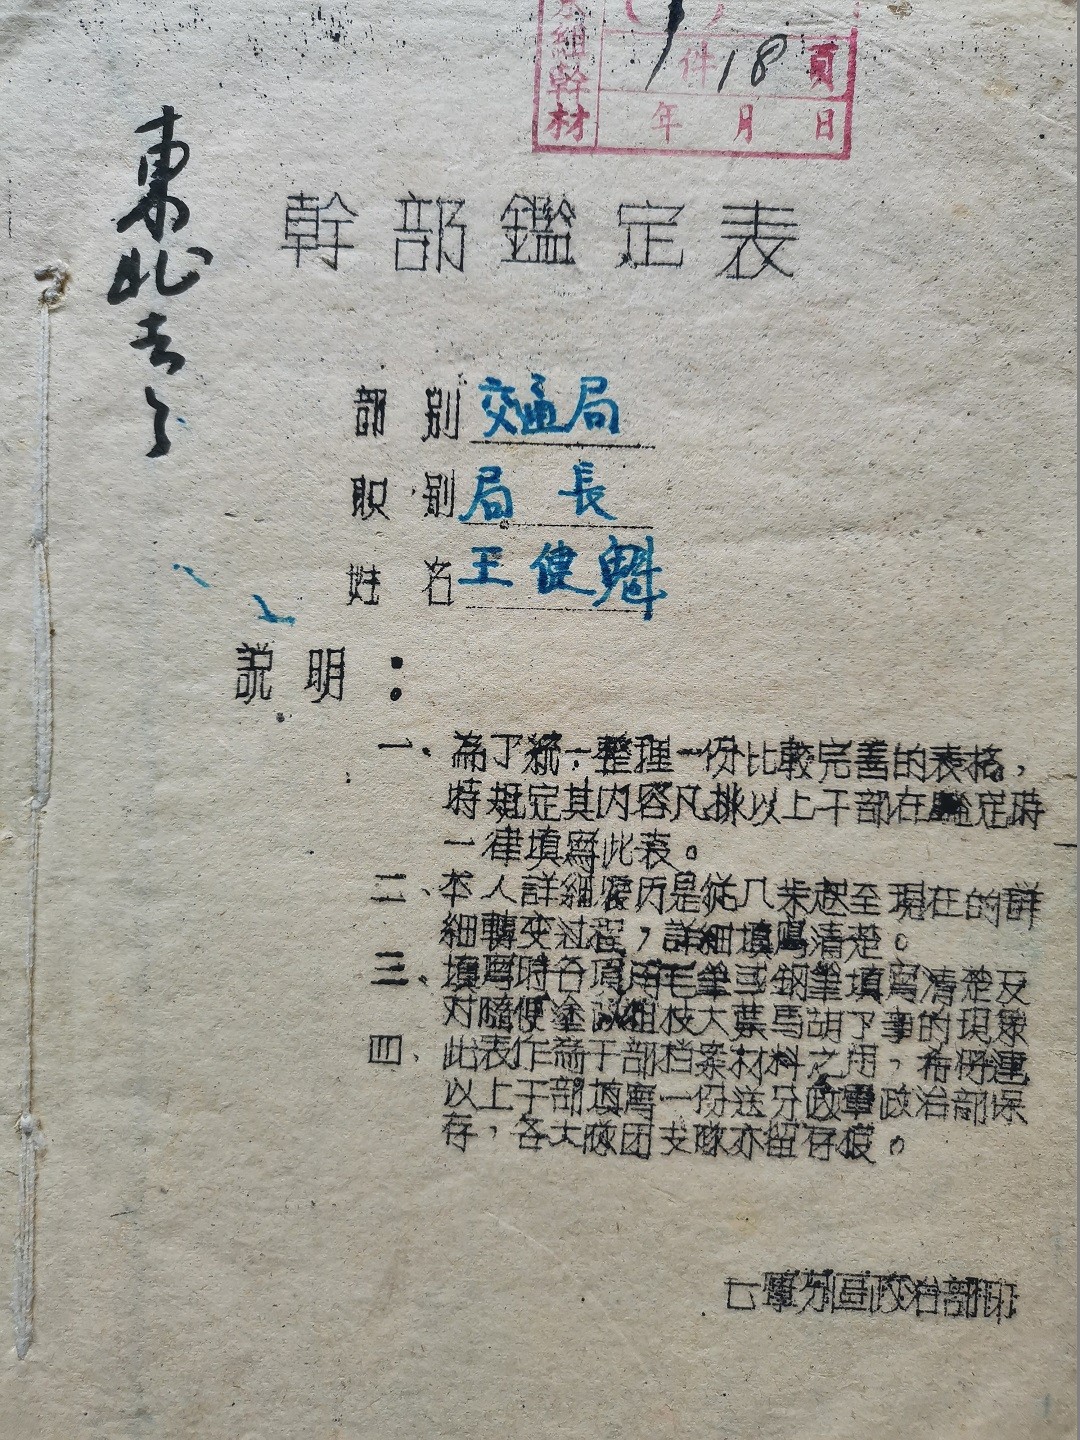 組幹材
件 18 頁
年 月 日
東北去了
幹部鑑定表
部 别 交通局
职 别 局 長
姓 名 王健魁
説 明：
一、為了統一整理一份比較完善的表格，
特規定其内容凡排以上干部在鑑定時
一律填寫此表。
二、本人詳細履历是从几岁起至現在的詳
細轉变过程，詳細填寫清楚。
三、填寫時各項用毛筆或鋼筆填寫清楚反
对隨便塗改粗枝大葉馬胡了事的現象
四、此表作為干部档案材料之用，希将連
以上干部填寫一份送分區政治部保
存，各大隊团支隊亦留存底。
七軍分區政治部印